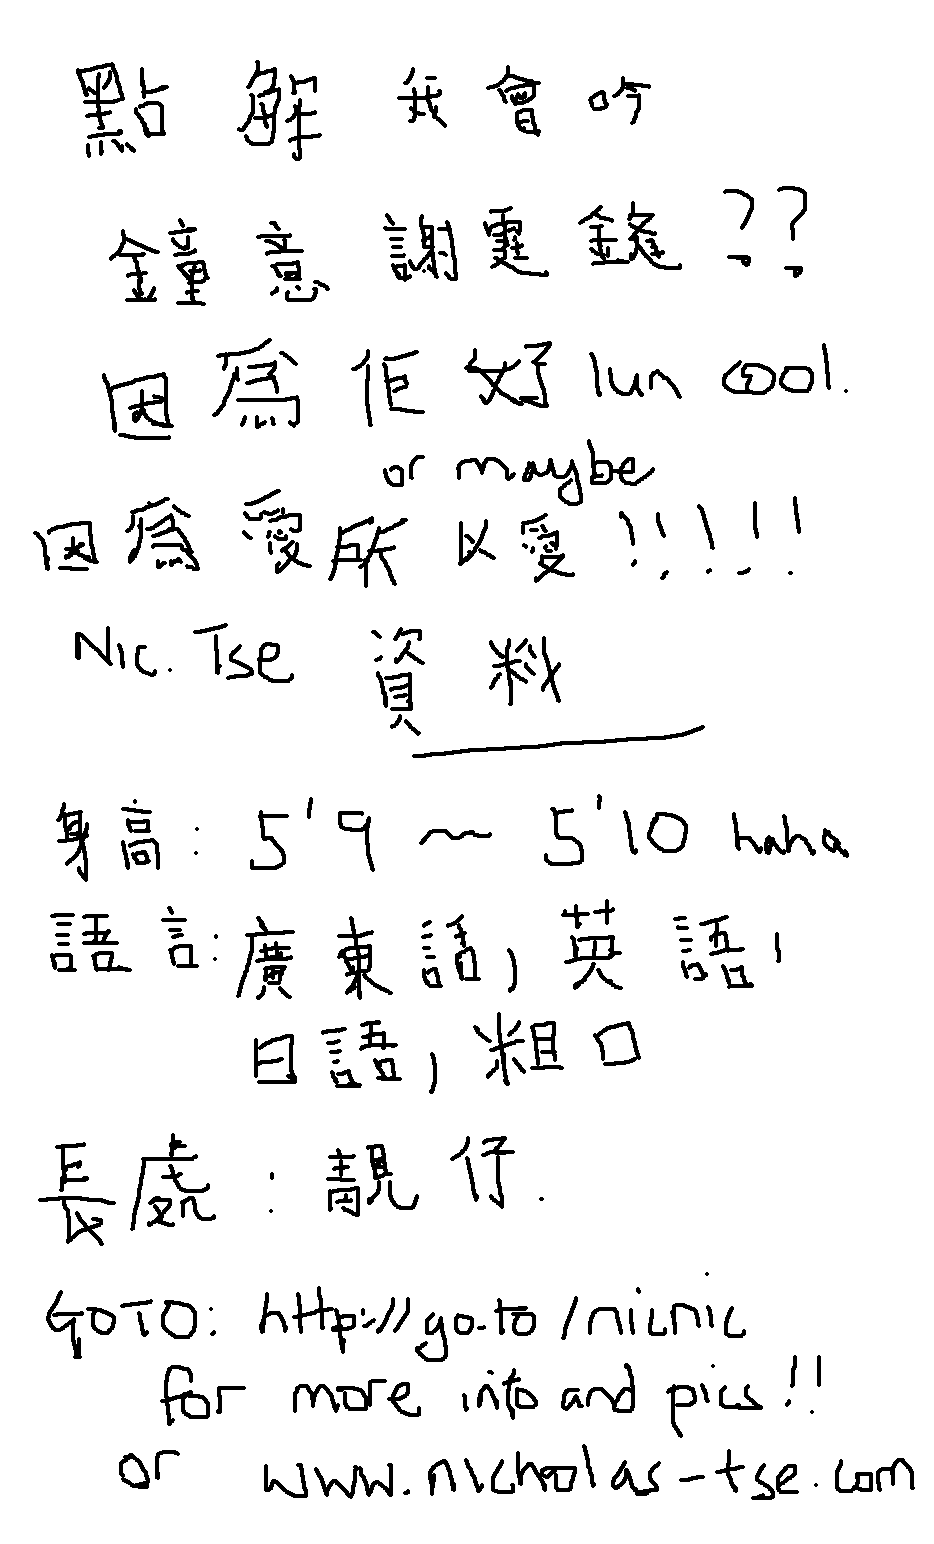 點解我會吟
鐘意謝霆鋒??
因為佢好 lun cool.
or maybe
因為愛所以愛!!!!!
Nic. Tse 資料
身高: 5'9 ~ 5'10 haha
語言: 廣東話, 英語,
日語, 粗口
長處: 靚仔.
GOTO: http://go.to/nicnic
for more info and pics!!
or www.nicholas-tse.com